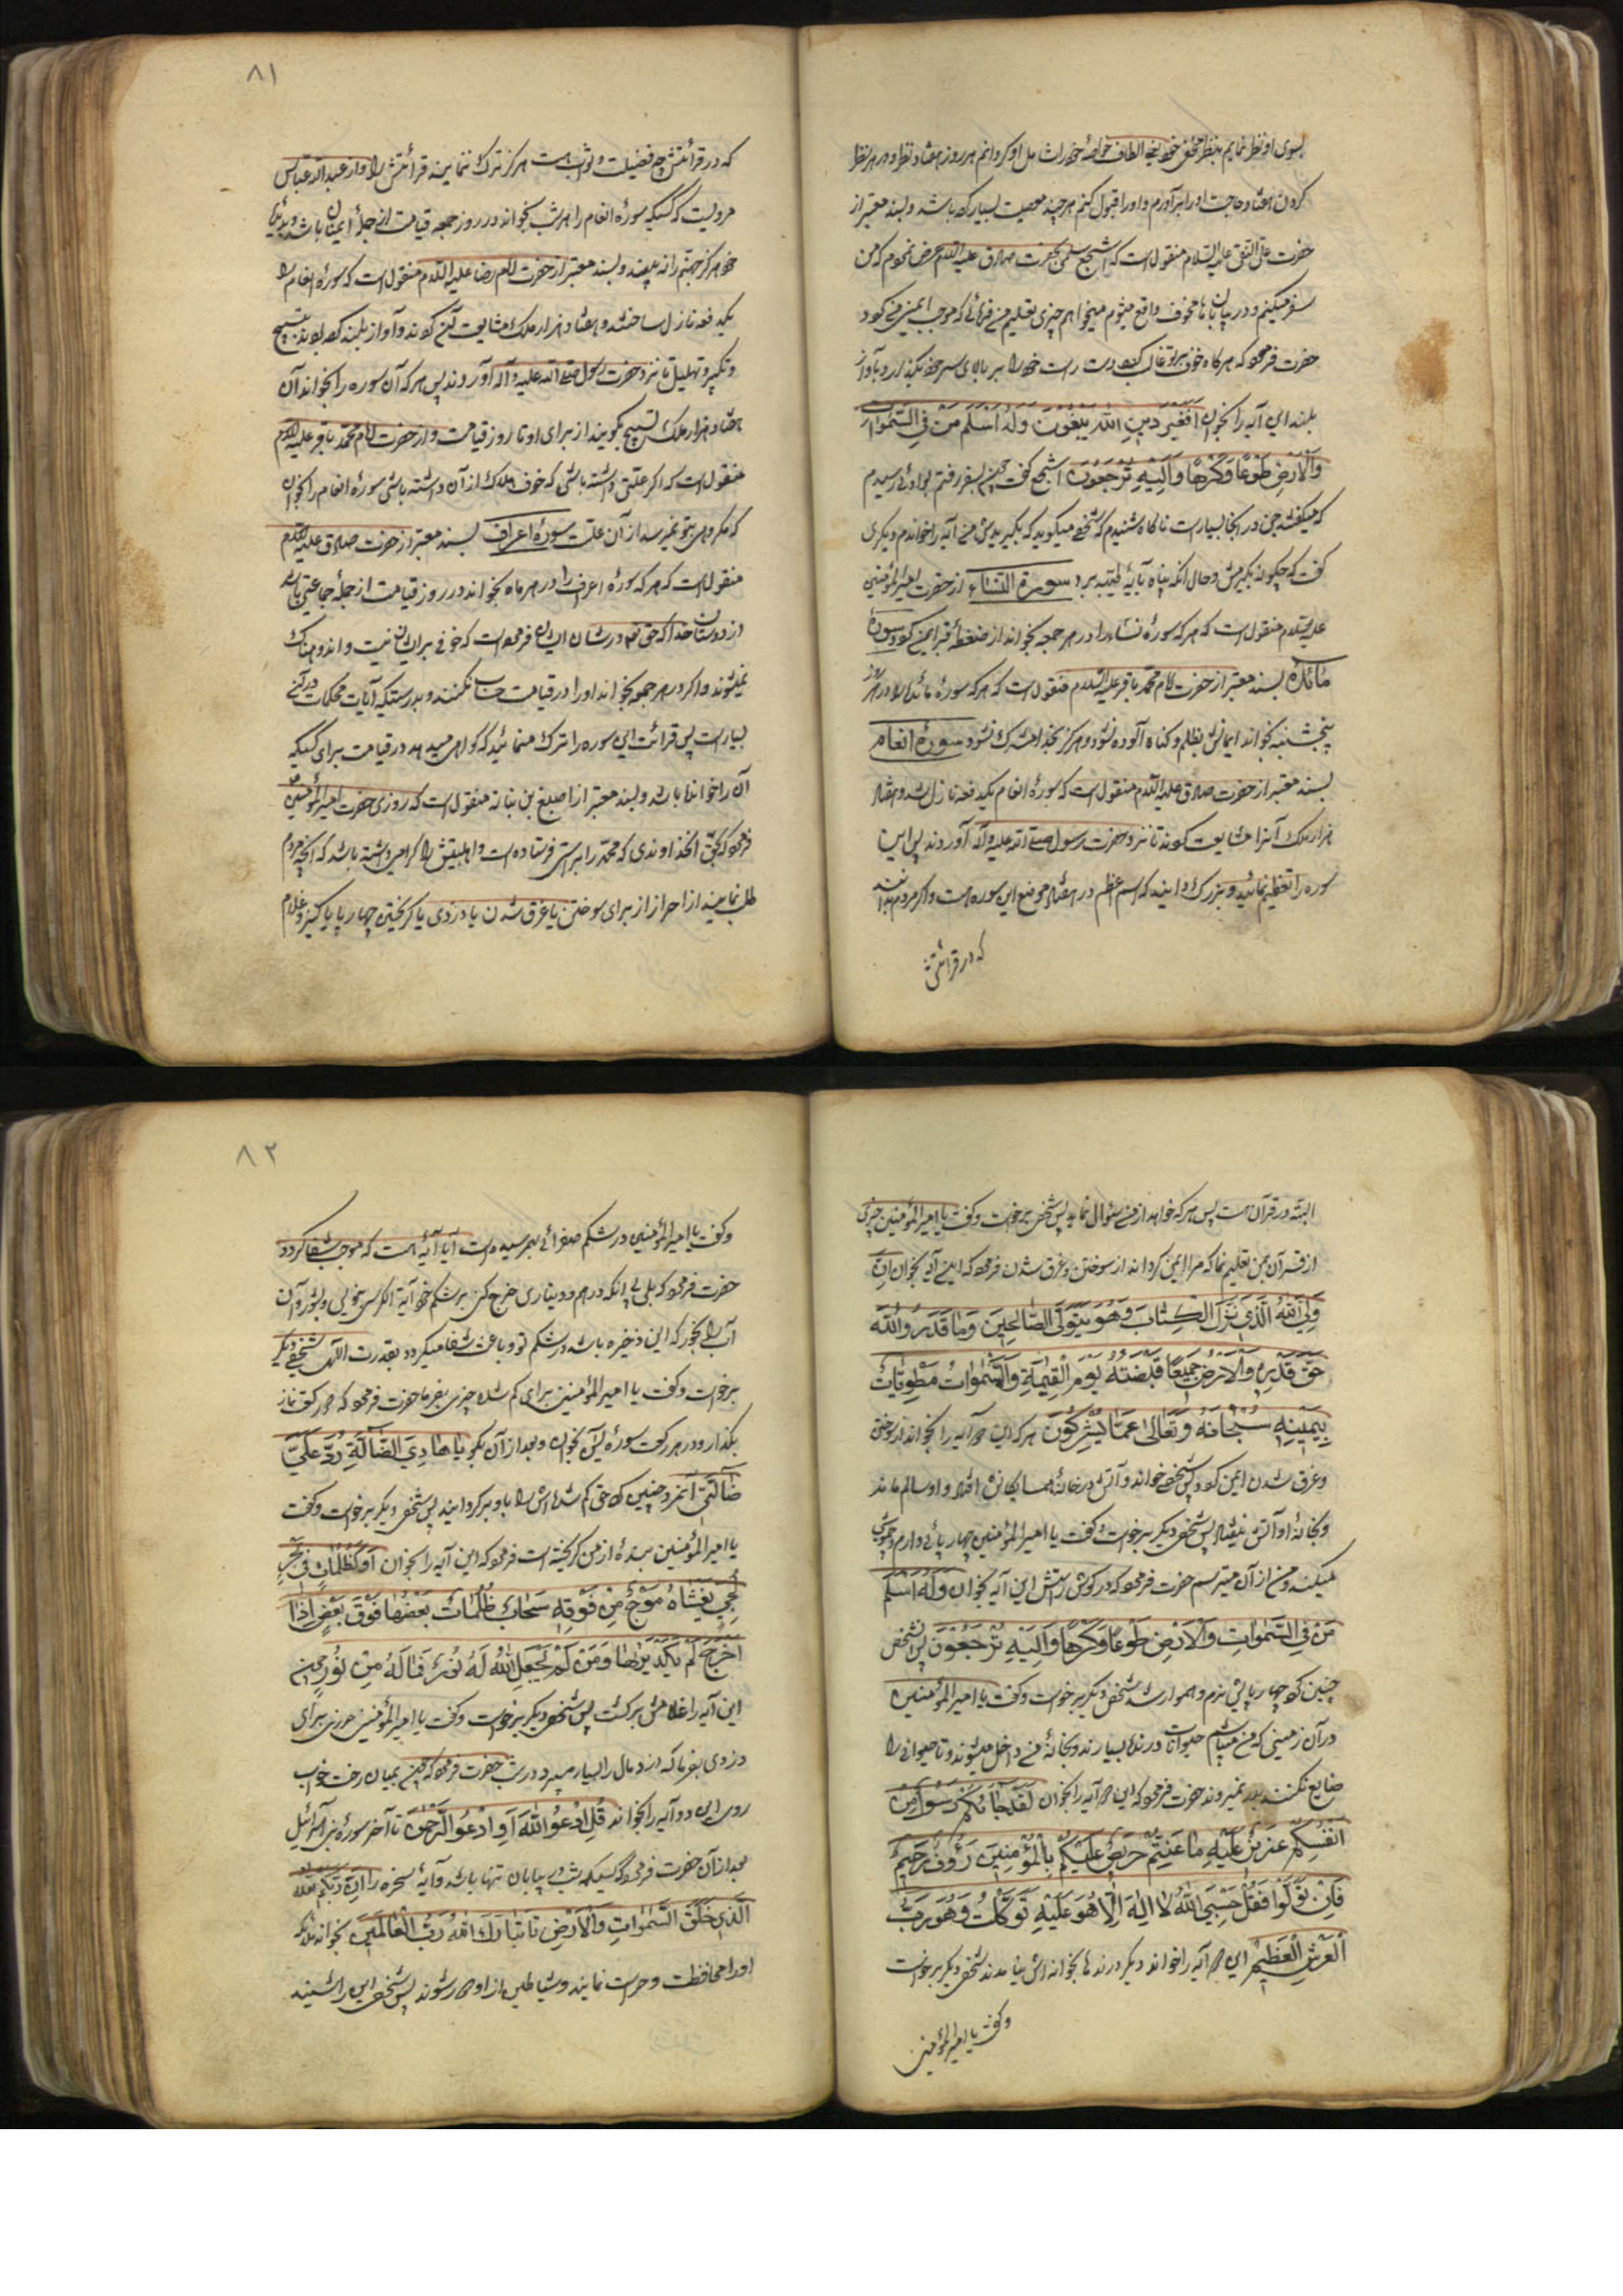 بسوی او نظر نمایم بنظر مخفی خود یعنی الطاف خاصهٔ خود را شامل او کردانم هر روز هفتاد نظر و در هر نظر
کردن هفتاد حاجت او را برآورم و او را قبول کنم هر چند معصیت بسیار کرده باشد و بسند معتبر از
حضرت علی النقی علیه السلام منقولست که اشجع سلمی بحضرت صادق علیه السلام عرض نمود که من
سفر میکنم و در بیابان ها مخوف واقع میشوم میخواهم چیزی تعلیم من فرمائی که موجب ایمنی من کردد
حضرت فرمود که هرکاه خوف بر تو غالب کردد دست راست خود را بر بالای سر خود بکذار و بآواز
بلند این آیه را بخوان اَفَغَیْرَ دینِ اللّٰهِ یَبْغُونَ وَلَهُ اَسْلَمَ مَنْ فِی السَّمٰوٰاتِ
وَالْاَرْضِ طَوْعًا وَکَرْهًا وَاِلَیْهِ تُرْجَعُونَ اشجع کفت چون بسفر رفتم بوادئی رسیدم
که میکفتند جن در آنجا بسیارست ناکاه شنیدم که شخصی میکوید که بگیریدش من آیه را خواندم دیکری
کفت که چکونه بگیریمش و حال آنکه پناه بآیهٔ طیبه برد سورة النساء از حضرت امیرالمؤمنین
علیه السلام منقول است که هر که سورهٔ نساء را در هر جمعه بخواند از ضغطهٔ قبر ایمن کردد سورهٔ
مائده بسند معتبر از حضرت امام محمد باقر علیه السلام منقول است که هر که سورهٔ مائده را در هر روز
پنجشنبه بخواند ایمانش بظلم و کناه آلوده نشود و هرکز بخدا مشرک نشود سورهٔ انعام
بسند معتبر از حضرت صادق علیه السلام منقول است که سورهٔ انعام بکدفعه نازل شد و هفتاد
هزار ملک آنرا مشایعت کردند تا نزد حضرت رسول صلی الله علیه و آله آوردند پس این
سوره را تعظیم نمائید و بزرک دانید که اسم اعظم در هفتاد موضع این سوره هست و اکر مردم بدانند
که در قرائتش
٨١
که در قرائتش چه فضیلت و ثواب هست هرکز ترک ننمایند قرائتش را و از عبدالله عباس
مرویست که کسیکه سورهٔ انعام را هر شب بخواند در روز جمعه قیامت از جملهٔ ایمنان باشد و بدیدهٔ
خود هرکز جهنم را نه بیند و بسند معتبر از حضرت امام رضا علیه السلام منقول است که سورهٔ انعام را
بکدفعه نازل ساختند و هفتاد هزار ملک مشایعت آن کردند و آواز بلند کرده بودند بتسبیح
و تکبیر و تهلیل تا نزد حضرت رسول صلی الله علیه و آله آوردند پس هر که آن سوره را بخواند آن
هفتاد هزار ملک تسبیح کویند از برای او تا روز قیامت و از حضرت امام محمد باقر علیه السلام
منقول است که اگر علتی داشته باشی که خوف هلاک از آن داشته باشی سورهٔ انعام را بخوان
که مکروهی بتو نمیرسد از آن علت سورهٔ اعراف بسند معتبر از حضرت صادق علیه السلام
منقول است که هر که سورهٔ اعراف را در هر ماه بخواند در روز قیامت از جملهٔ جماعتی باشد
از دوستان خدا که حق تعالی در شان ایشان فرموده است که خوفی بر ایشان نیست و اندوهناک
نمیشوند و اکر در هر جمعه بخواند او را در قیامت حساب نکنند و بدرستیکه آیات محکمات در آن
بسیار است پس قرائت این سوره را ترک منمائید که کواهی میدهد در قیامت برای کسیکه
آن را خوانده باشد و بسند معتبر از اصبغ بن نباته منقول است که روزی حضرت امیرالمؤمنین
فرمود که بحق آنخداوندی که محمد را براستی فرستاده است و اهلبیتش را کرامی داشته باشد که آنچه مردم
طلب نمایند از احراز از برای سوختن یا غرق شدن یا دزدی یا کریختن چهارپا یا کنیز و غلام
البته در قرآن هست پس هر که خواهد از من سؤال نماید پس شخصی برخواست و کفت یا امیرالمؤمنین چیزی
از قرآن بمن تعلیم نما که مرا ایمن کرداند از سوختن و غرق شدن فرمود که این آیه بخوان اِنَّ
وَلِیِّ‌َ اللّٰهُ الَّذی نَزَّلَ الْکِتٰابَ وَهُوَ یَتَوَلَّی الصّٰالِحینَ وَمٰا قَدَرُوا اللّٰهَ
حَقَّ قَدْرِهِ وَالْاَرْضُ جَمیعًا قَبْضَتُهُ یَوْمَ الْقِیٰمَةِ وَالسَّمٰوٰاتُ مَطْوِیّٰاتٌ
بِیَمینِهِ سُبْحٰانَهُ وَتَعٰالیٰ عَمّٰا یُشْرِکُونَ هر که این دو آیه را بخواند از سوختن
و غرق شدن ایمن کردد پس شخصی خواند و آتش در خانهٔ همسایکانش افتاد و او سالم ماند
و بخانهٔ او آتش نیفتاد پس شخصی دیکر برخواست و کفت یا امیرالمؤمنین چهارپائی دارم و چموشی
میکند و من از آن میترسم حضرت فرمود که در کوش راستش این آیه بخوان وَلَهُ اَسْلَمَ
مَنْ فِی السَّمٰوٰاتِ وَالْاَرْضِ طَوْعًا وَکَرْهًا وَاِلَیْهِ تُرْجَعُونَ پس آنشخص
چنین کرد چهارپایش نرم و هموار شد شخصی دیکر برخواست و کفت یا امیرالمؤمنین
در آن زمینی که من میباشم حیوانات درنده بسیارند و بخانهٔ من داخل میشوند و تا حیوانی را
ضایع نکنند بدر نمیروند حضرت فرمود که این دو آیه را بخوان لَقَدْ جٰاءَکُمْ رَسُولٌ مِنْ
اَنْفُسِکُمْ عَزیزٌ عَلَیْهِ مٰا عَنِتُّمْ حَریصٌ عَلَیْکُمْ بِالْمُؤْمِنینَ رَؤُفٌ رَحیمٌ
فَاِنْ تَوَلَّوْا فَقُلْ حَسْبِیَ اللّٰهُ لٰا اِلٰهَ اِلّٰا هُوَ عَلَیْهِ تَوَکَّلْتُ وَهُوَ رَبُّ
الْعَرْشِ الْعَظیمِ این دو آیه را خواند دیکر درنده ها بخوانه اش نیامدند شخصی دیکر برخواست
و کفت یا امیرالمؤمنین
٨٢
و کفت یا امیرالمؤمنین در شکم صفرائی بهمرسیده است آیا آیهٔ هست که موجب شفا کردد
حضرت فرمود که بلی بی آنکه درهم و دیناری خرج کنی بر شکم خود آیة الکرسی بنویس و بشور و آن
آب را بخور که این ذخیره باشد در شکم تو و باعث شفا میکردد بقدرت آلهی شخصی دیکر
برخواست و کفت یا امیرالمؤمنین برای کم شده چیزی بفرما حضرت فرمود که دو رکعت نماز
بکذار و در هر رکعت سورهٔ یس بخوان و بعد از آن بکو یٰا هٰادِیَ الضّٰالَّةِ رُدَّ عَلَیَّ
ضٰالَّتی آنمرد چنین کرد حق کم شده اش را باو برکردانید پس شخصی دیکر برخواست و کفت
یا امیرالمؤمنین بندهٔ از من کریخته است فرمود که این آیه را بخوان اَوْ کَظُلُمٰاتٍ فی بَحْرٍ
لُجِّیٍّ یَغْشٰاهُ مَوْجٌ مِنْ فَوْقِهِ سَحٰابٌ ظُلُمٰاتٌ بَعْضُهٰا فَوْقَ بَعْضٍ اِذٰا
اَخْرَجَ لَمْ یَکَدْ یَرٰاهٰا وَمَنْ لَمْ یَجْعَلِ اللّٰهُ لَهُ نُورًا فَمٰا لَهُ مِنْ نُورٍ چون
این آیه را غلامش برکشت پس شخص دیکر برخواست و کفت یا امیرالمؤمنین حرزی برای
دزدی بفرما که دزد مال را بسیار میبرد در شب حضرت فرمود که چون بمیان رخت خواب
روی این دو آیه را بخواند قُلِ ادْعُوا اللّٰهَ اَوِ ادْعُوا الرَّحْمٰنَ تا آخر سورهٔ بنی اسرائیل
بعد از آن حضرت فرمود که کسیکه شب در بیابان تنها باشد و آیهٔ سخره را اِنَّ رَبَّکُمُ اللّٰهُ
الَّذی خَلَقَ السَّمٰوٰاتِ وَالْاَرْضَ تا تَبٰارَکَ اللّٰهُ رَبُّ الْعٰالَمینَ بخواند ملائکه
او را محافظت و حراست نمایند و شیاطین از او دور شوند پس شخصی این را شنید